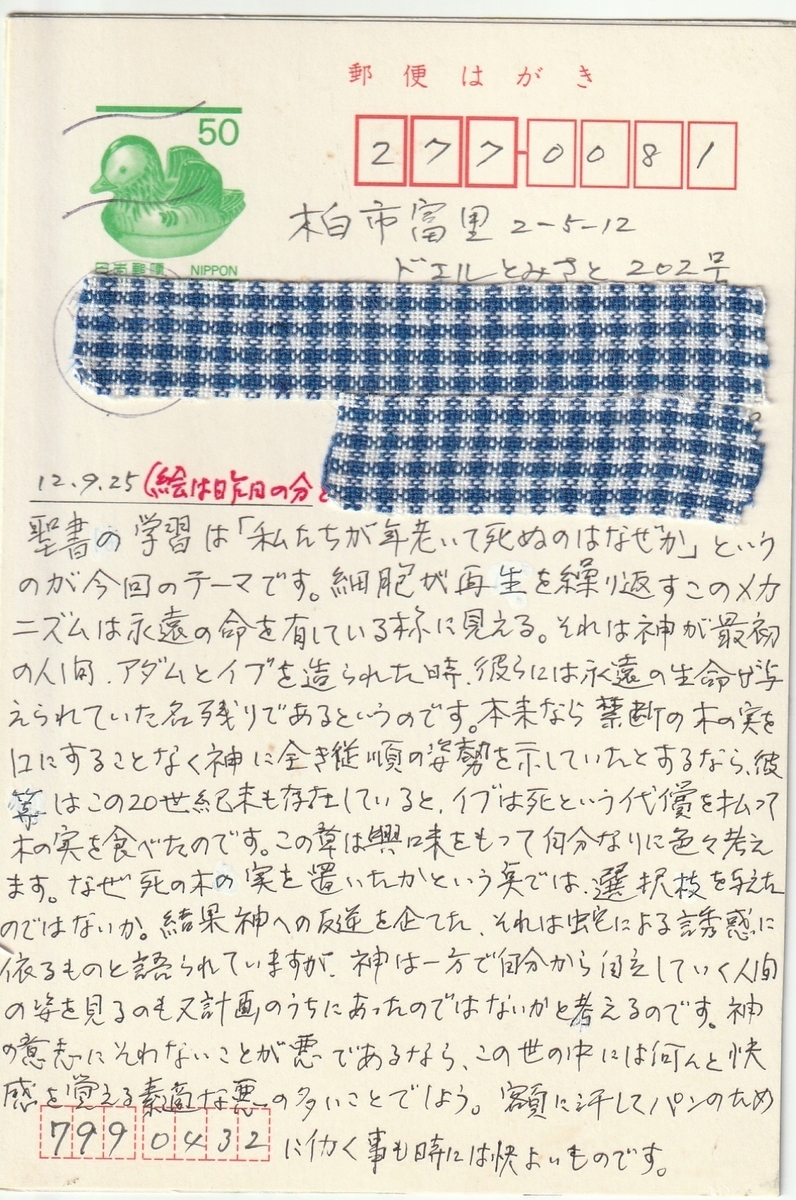 郵便はがき
50
277-0081
日本郵便 NIPPON
柏市富里 2-5-12
ドエルとみさと 202号
12.9.25 (絵は昨日の分
聖書の学習は「私たちが年老いて死ぬのはなぜか」という
のが今回のテーマです。細胞が再生を繰り返すこのメカ
ニズムは永遠の命を有している様に見える。それは神が最初
の人間、アダムとイブを造られた時、彼らには永遠の生命が与
えられていた名残りであるというのです。本来なら禁断の木の実を
口にすることなく神に全き従順の姿勢を示していたとするなら、彼
等はこの20世紀末も存在していると、イブは死という代償を払って
木の実を食べたのです。この章は興味をもって自分なりに色々考え
ます。なぜ死の木の実を置いたかという点では、選択枝を与えた
のではないか。結果神への反逆を企てた、それは蛇による誘惑に
依るものと語られていますが、神は一方で自分から自立していく人間
の姿を見るのも又計画のうちにあったのではないかと考えるのです。神
の意志にそわないことが悪であるなら、この世の中には何んと快
感を覚える素適な悪の多いことでしょう。額に汗してパンのため
に働く事も時には快よいものです。
799 0432